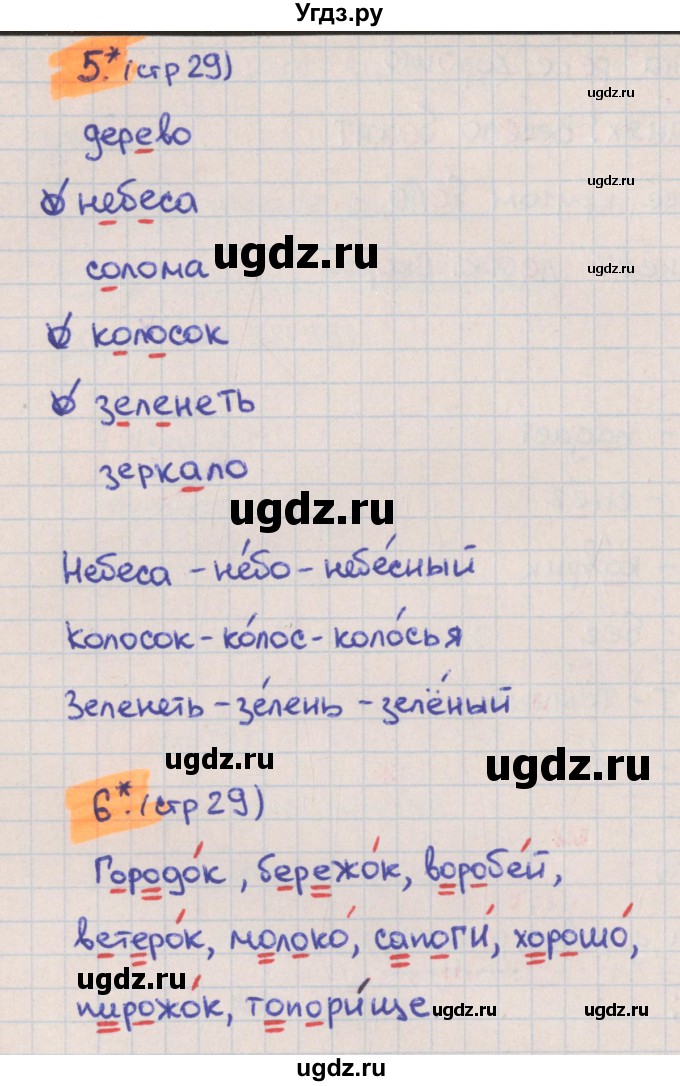 Угдз.ру
5.* (стр 29)
ugdz.ru
дерево
ugdz.ru
небеса
ugdz.ru
ugdz.ru
солома
ugdz.ru
колосок
зеленеть
зеркало
ugdz.ru
Небеса - не́бо - небе́сный
Колосок - ко́лос - коло́сья
Зеленеть - зе́лень - зелё́ный
ugdz.ru
ugdz.ru
6*. (стр 29)
Городо́к, бережо́к, воробе́й,
ветеро́к, молоко́, сапоги́, хорошо́,
ugdz.ru
пирожо́к, топори́ще
ugdz.ru
ugdz.ru
ugdz.ru